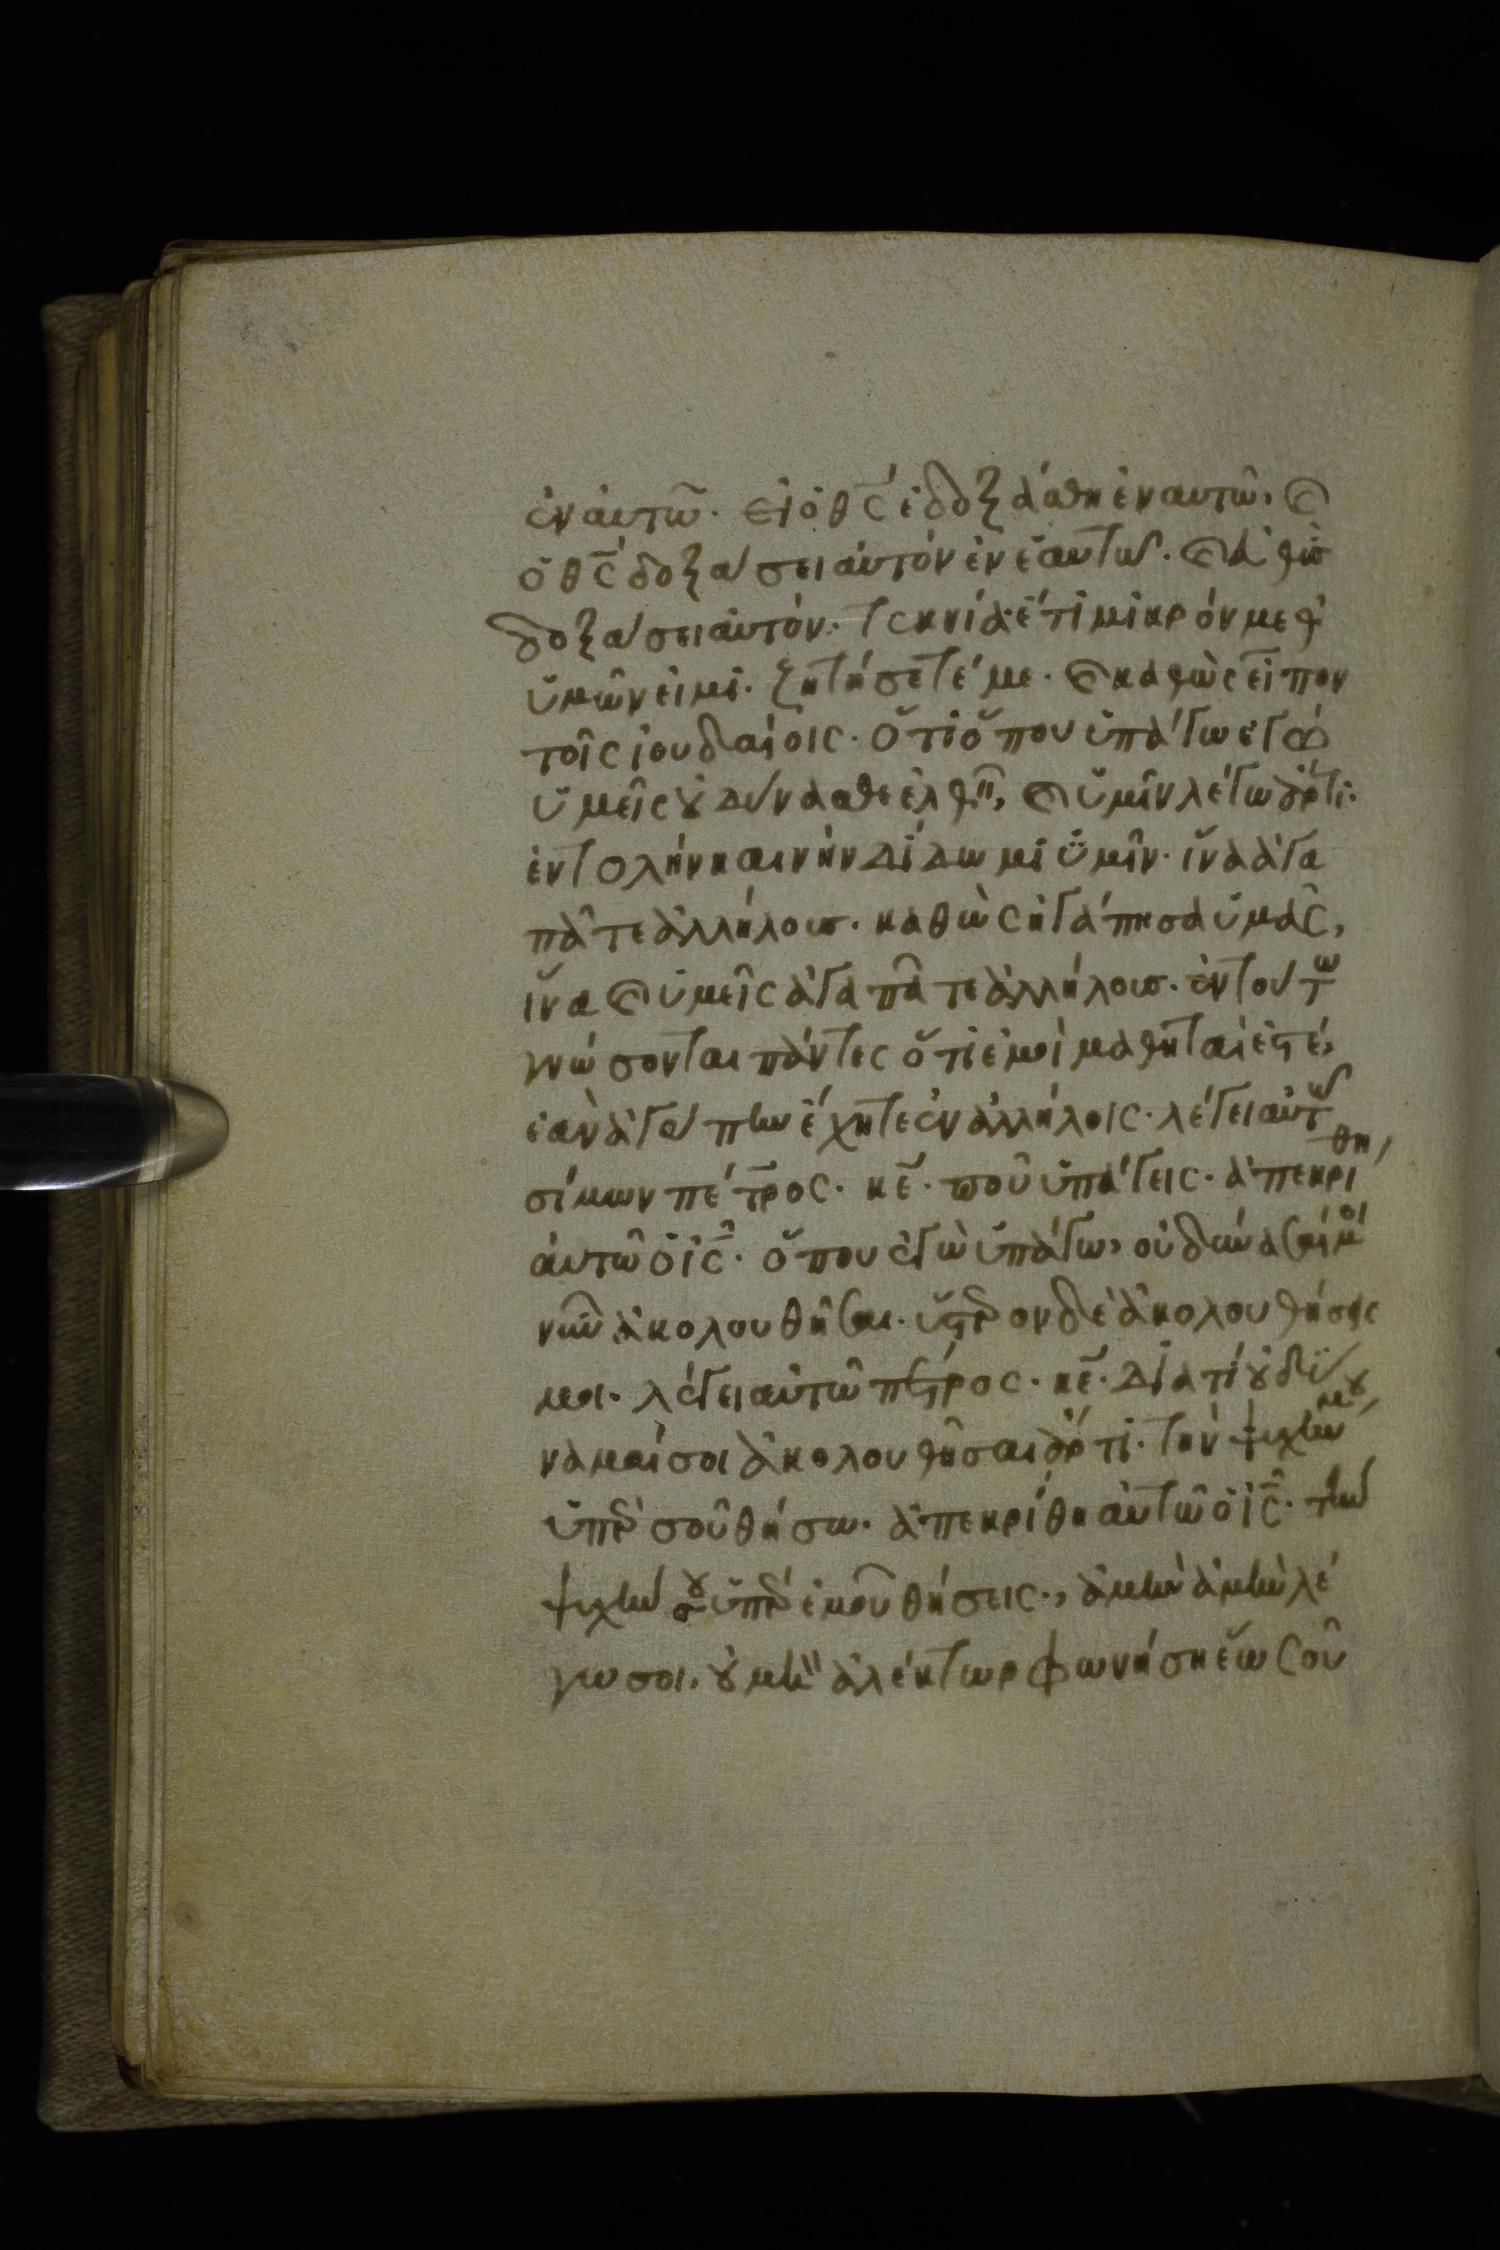 ἐν αὐτῶ. εἰ ὁ θς ἐδοξάσθη ἐν αὐτῶ, καὶ
ὁ θς δοξάσει αὐτὸν ἐν ἑαυτῶ. καὶ εὐθὺς
δοξάσει αὐτόν. τεκνία ἔτι μικρὸν μεθ'
ὑμῶν εἰμι. ζητήσετέ με. καὶ καθὼς εἶπον
τοῖς ἰουδαίοις. ὅτι ὅπου ὑπάγω ἐγὼ
ὑμεῖς οὐ δύνασθε ἐλθεῖν, καὶ ὑμῖν λέγω ἄρτι.
ἐντολὴν καινὴν δίδωμι ὑμῖν. ἵνα ἀγα
πᾶτε ἀλλήλους. καθὼς ἠγάπησα ὑμᾶς,
ἵνα καὶ ὑμεῖς ἀγαπᾶτε ἀλλήλους. ἐν τούτω
γνώσονται πάντες ὅτι ἐμοὶ μαθηταί ἐστέ,
ἐὰν ἀγάπην ἔχητε ἐν ἀλλήλοις. λέγει αὐτῶ
σίμων πέτρος. κε. ποῦ ὑπάγεις. ἀπεκρίθη
αὐτῶ ὁ ις. ὅπου ἐγὼ ὑπάγω, οὐ δύνασαί μοι
νῦν ἀκολουθῆσαι. ὕστερον δὲ ἀκολουθήσεις
μοι. λέγει αὐτῶ πέτρος. κε. διατί οὐ δύ
ναμαί σοι ἀκολουθῆσαι ἄρτι. τὴν ψυχήν μου
ὑπὲρ σοῦ θήσω. ἀπεκρίθη αὐτῶ ὁ ις. τὴν
ψυχήν σου ὑπὲρ ἐμοῦ θήσεις., ἀμὴν ἀμὴν λέ
γω σοι, οὐ μὴ ἀλέκτωρ φωνήση ἕως οὗ